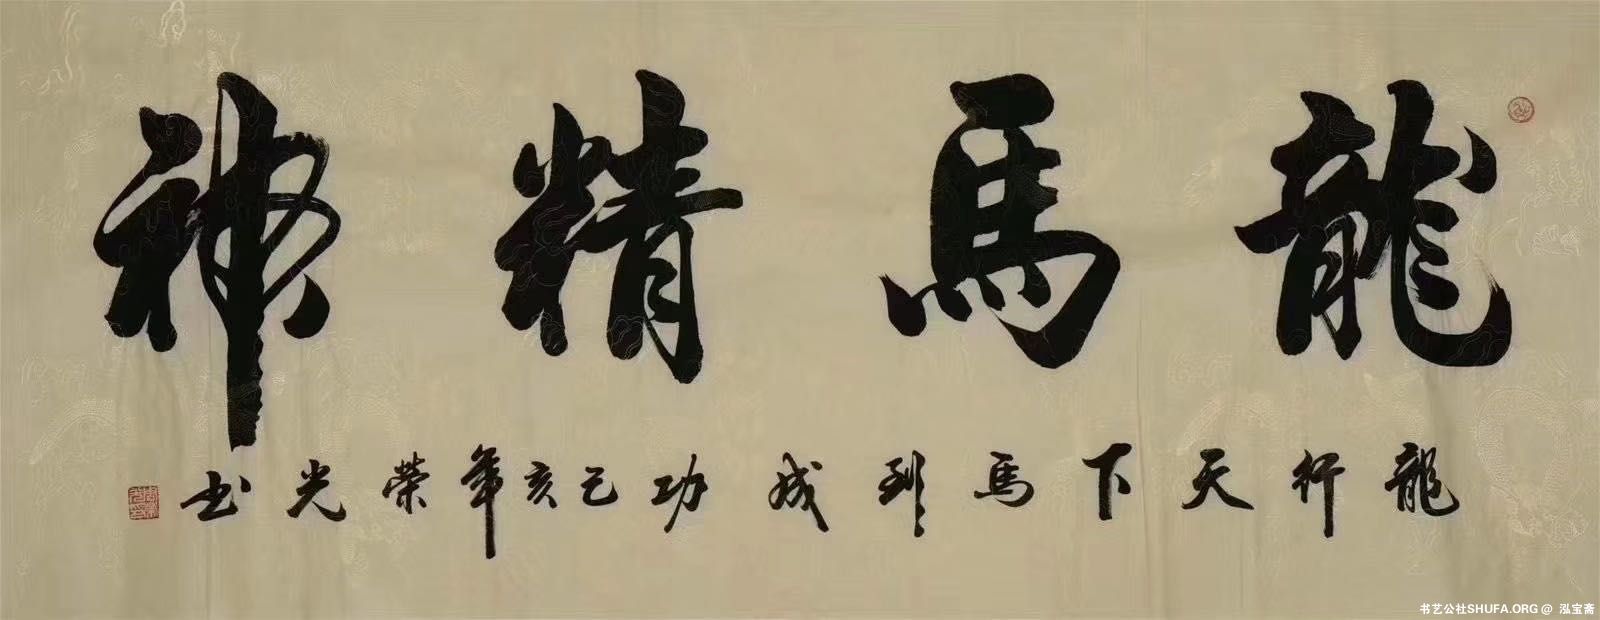 龍馬精神
龍行天下馬到成功己亥年榮光书
书艺公社SHUFA.ORG @ 泓宝斋